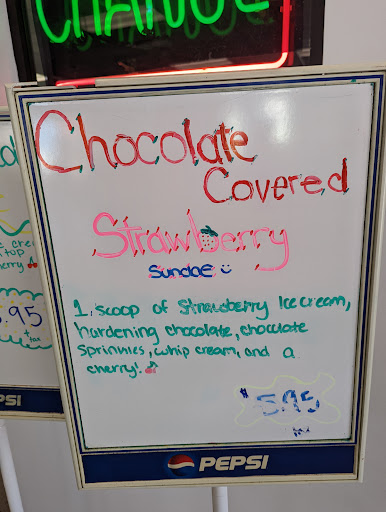 CHANGE
Chocolate
Covered
Strawberry
Sundae
1 scoop of Strawberry Ice cream,
hardening chocolate, chocolate
sprinkles, whip cream, and a
cherry!
$5.95
tax
PEPSI
.95
+ tax
PSI